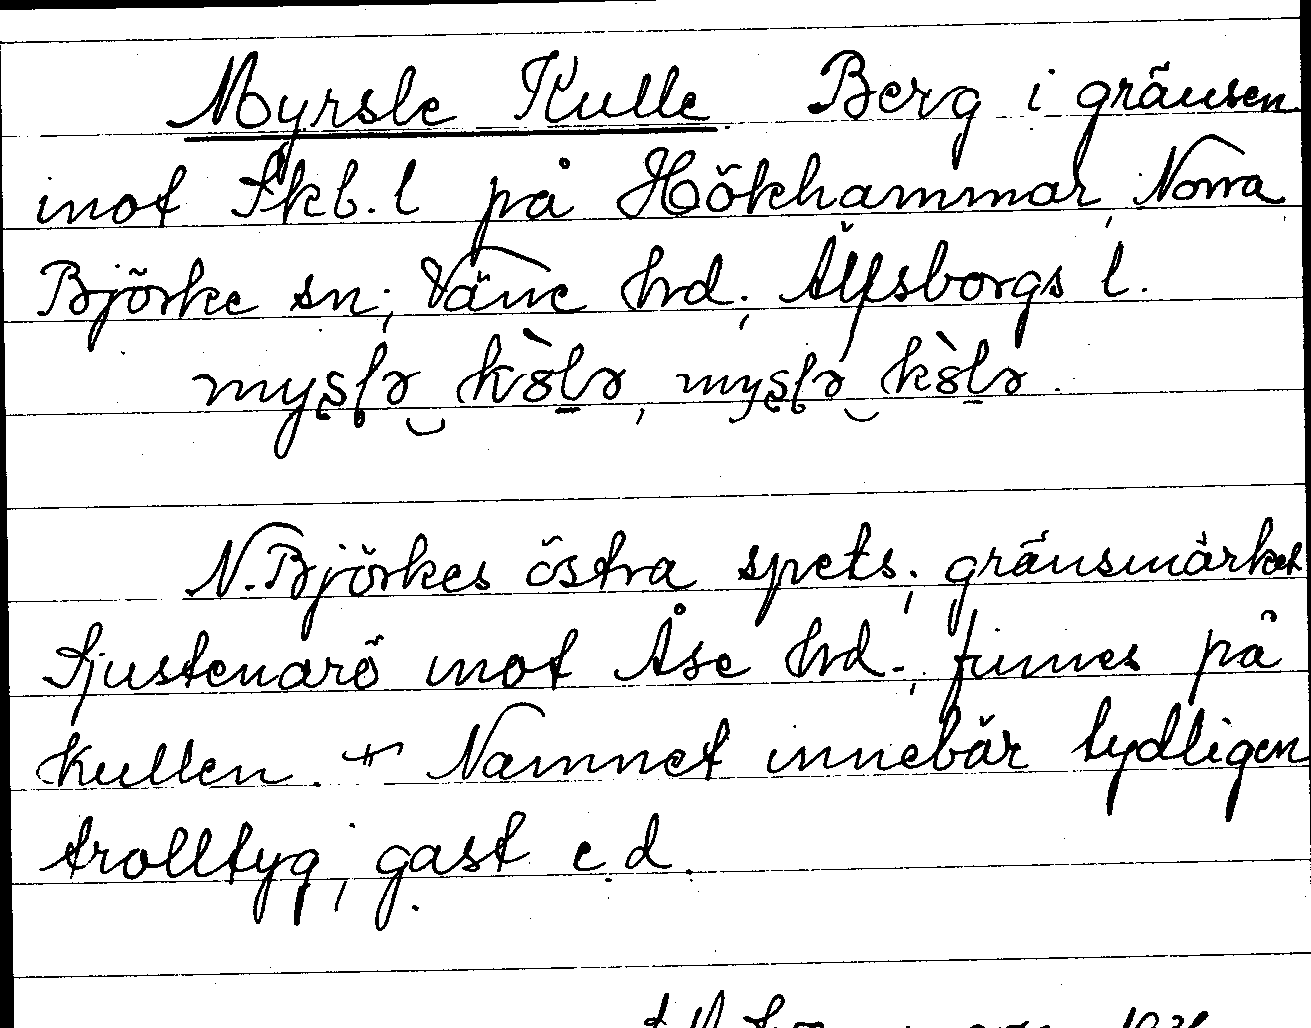 Myrsle Kulle. Berg i gränsen
mot Skb. l på Hökhammar, Norra
Björke sn; Väne hrd; Älfsborgs l.
N. Björkes östra spets; gränsmärket
Sjustenarö mot Åse hrd.; finnes på
kullen. Namnet innebär tydligen
trolltyg, gast e.d.